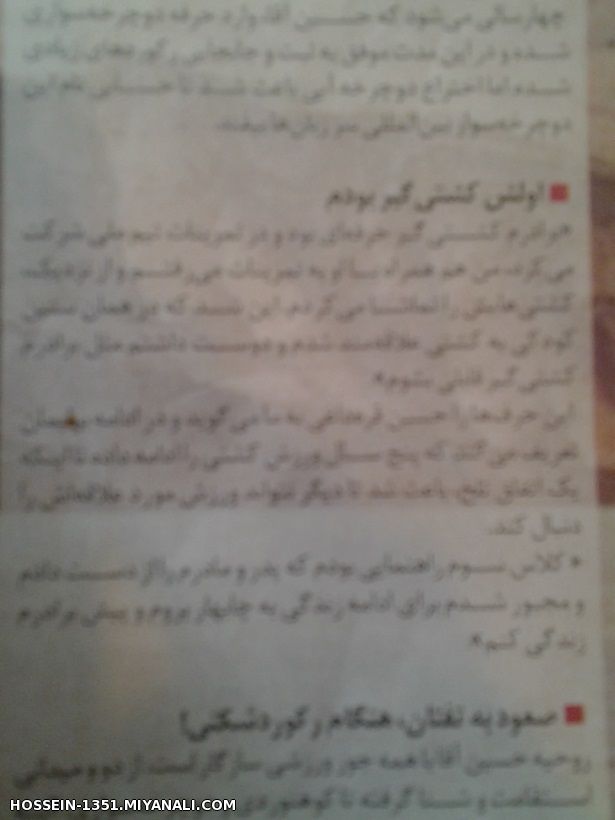 چهارسالی می‌شود که حسین آقا وارد حرفه دوچرخه‌سواری
شده و در این مدت موفق به ثبت و جابجایی رکوردهای زیادی
شده اما اختراع دوچرخه آبی باعث شد تا حسابی نام این
دوچرخه‌سوار بین‌المللی سر زبان‌ها بیفتد.
اولش کشتی گیر بودم
«برادرم کشتی گیر حرفه‌ای بود و در تمرینات تیم ملی شرکت
می‌کرد، من هم همراه با او به تمرینات می‌رفتم و از نزدیک،
کشتی‌هایش را تماشا می‌کردم. این شد که در همان سنین
کودکی به کشتی علاقه‌مند شدم و دوست داشتم مثل برادرم
کشتی گیر قابلی بشوم».
این حرف‌ها را حسین به ما می‌گوید و در ادامه
تعریف می‌کند که پنج سال ورزش کشتی را ادامه داده تا اینکه
یک اتفاق تلخ، باعث شد تا دیگر نتواند ورزش مورد علاقه‌اش را
دنبال کند.
«کلاس سوم راهنمایی بودم که پدر و مادرم را از دست دادم
و مجبور شدم برای ادامه زندگی به چابهار بروم و پیش برادرم
زندگی کنم».
صعود به تفتان، هنگام رکوردشکنی!
روحیه حسین آقا با همه جور ورزشی سازگار است، از دو و میدانی
استقامت و شنا گرفته تا کوهنوردی
HOSSEIN-1351.MIYANALI.COM